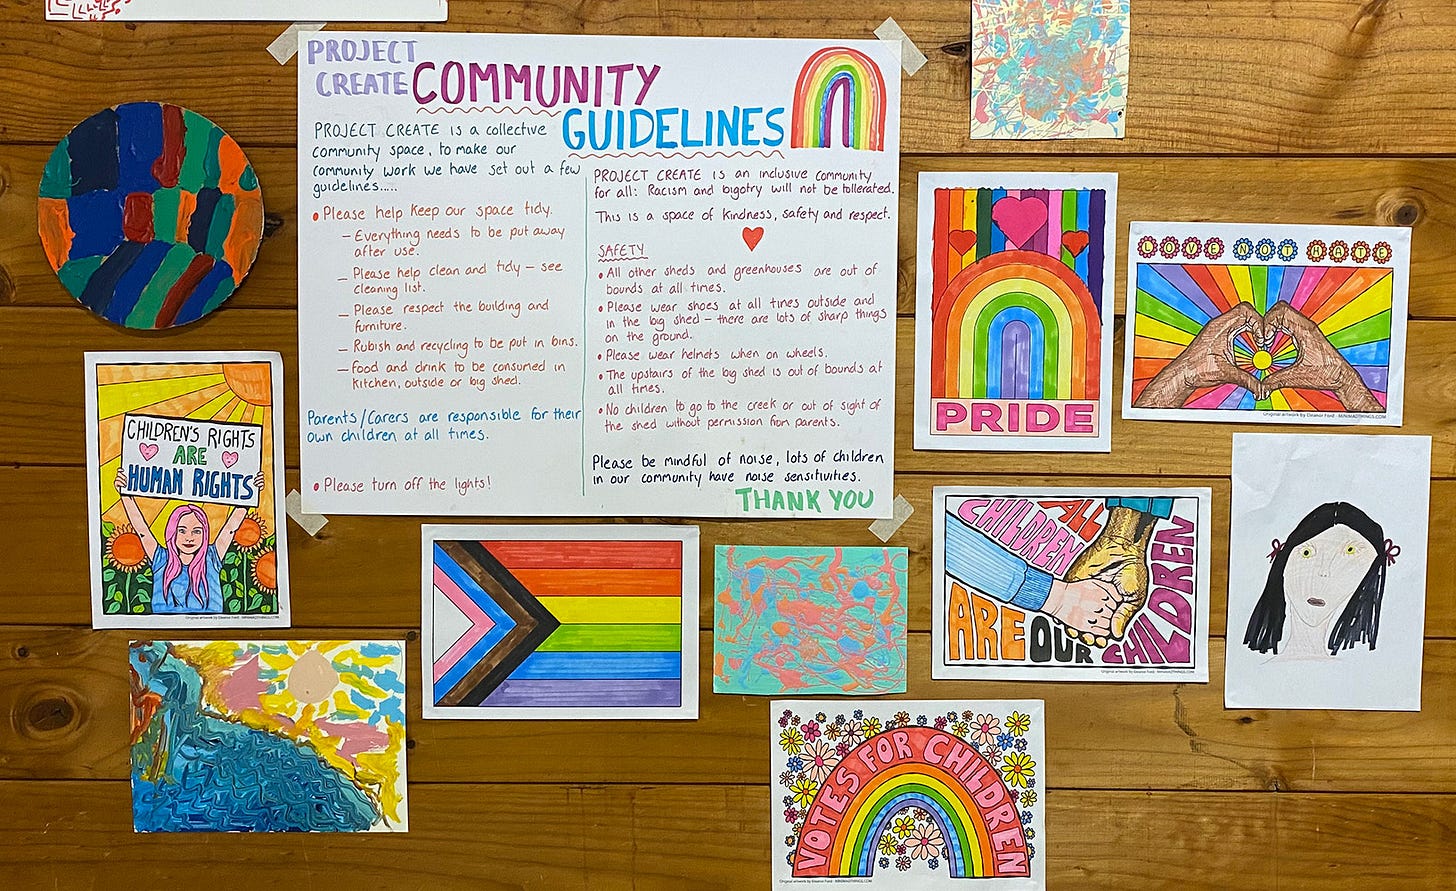 PROJECT
CREATE COMMUNITY
GUIDELINES
PROJECT CREATE is a collective
community space, to make our
community work we have set out a few
guidelines.....
• Please help keep our space tidy.
– Everything needs to be put away
after use.
– Please help clean and tidy – see
cleaning list.
– Please respect the building and
furniture.
– Rubish and recycling to be put in bins.
– Food and drink to be consumed in
kitchen, outside or big shed.
Parents/Carers are responsible for their
own children at all times.
• Please turn off the lights!
PROJECT CREATE is an inclusive community
for all: Racism and bigotry will not be tollerated.
This is a space of kindness, safety and respect.
SAFETY
• All other sheds and greenhouses are out of
bounds at all times.
• Please wear shoes at all times outside and
in the big shed – there are lots of sharp things
on the ground.
• Please wear helmets when on wheels.
• The upstairs of the big shed is out of bounds at
all times.
• No children to go to the creek or out of sight of
the shed without permission from parents.
Please be mindful of noise, lots of children
in our community have noise sensitivities.
THANK YOU
PRIDE
LOVE NOT HATE
Original artwork by Eleanor Ford - MINIMADTHINGS.COM
CHILDREN'S RIGHTS
ARE
HUMAN RIGHTS
Original artwork by Eleanor Ford - MINIMADTHINGS.COM
ALL
CHILDREN
ARE OUR CHILDREN
Original artwork by Eleanor Ford - MINIMADTHINGS.COM
VOTES FOR CHILDREN
Original artwork by Eleanor Ford - MINIMADTHINGS.COM